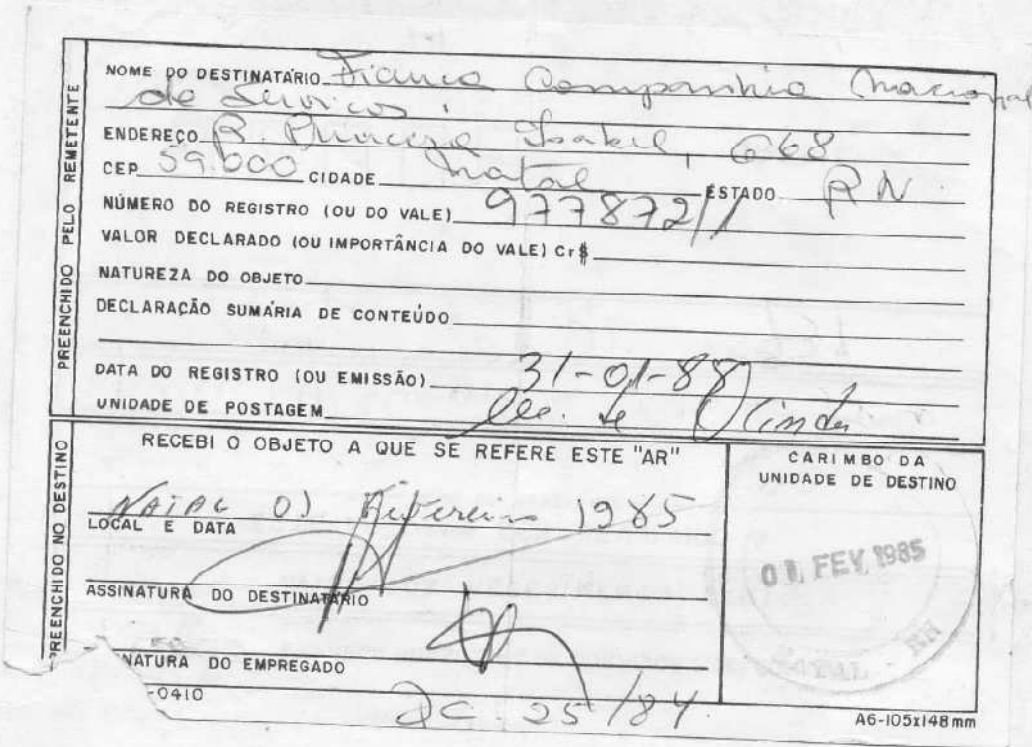 PREENCHIDO PELO REMETENTE
NOME DO DESTINATÁRIO Fiança Companhia Nacional
de Serviços
ENDEREÇO R. Princesa Isabel, 668
CEP 59.000 CIDADE Natal ESTADO RN.
NÚMERO DO REGISTRO (OU DO VALE) 977872//
VALOR DECLARADO (OU IMPORTÂNCIA DO VALE) Cr$
NATUREZA DO OBJETO
DECLARAÇÃO SUMÁRIA DE CONTEÚDO
DATA DO REGISTRO (OU EMISSÃO) 31-01-85
UNIDADE DE POSTAGEM de Olinda
PREENCHIDO NO DESTINO
RECEBI O OBJETO A QUE SE REFERE ESTE "AR"
NATAL 01 Fevereiro 1985
LOCAL E DATA
ASSINATURA DO DESTINATÁRIO
NATURA DO EMPREGADO
-0410
DC. 25/84
CARIMBO DA
UNIDADE DE DESTINO
01 FEV 1985
NATAL - RN
A6-105x148mm